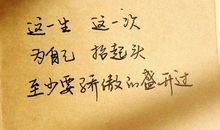 这一生 这一次
为自己 抬起头
至少要骄傲的盛开过